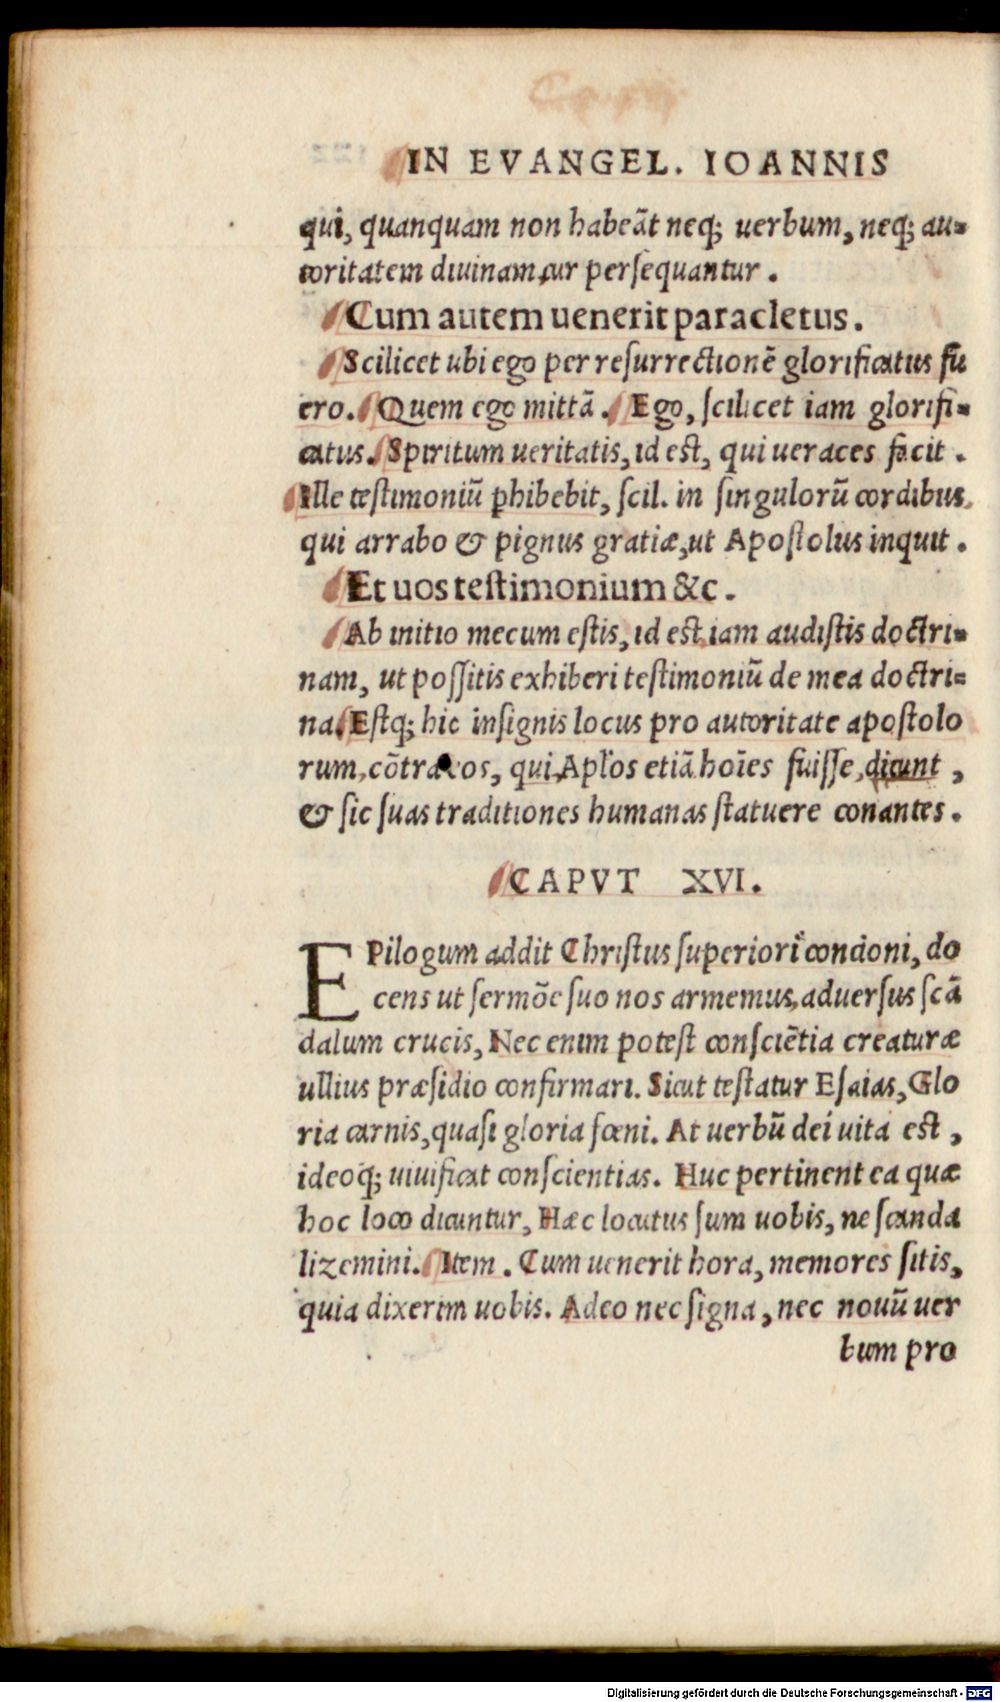 IN EVANGEL. IOANNIS
qui, quanquam non habeãt neq; uerbum, neq; au=
toritatem diuinam, ur persequantur.
Cum autem uenerit paracletus.
Scilicet ubi ego per resurrectionẽ glorificatus fu
ero. Quem ego mittã. Ego, scilicet iam glorifi=
catus. Spiritum ueritatis, id est, qui ueraces facit.
Ille testimoniũ ꝑhibebit, scil. in singulorũ cordibus,
qui arrabo & pignus gratiæ, ut Apostolus inquit.
Et uos testimonium &c.
Ab initio mecum estis, id est, iam audistis doctri=
nam, ut possitis exhiberi testimoniũ de mea doctri=
na. Estq; hic insignis locus pro autoritate apostolo
rum, cõtra eos, qui, Apl'os etiã hoĩes fuisse, dicunt,
& sic suas traditiones humanas statuere conantes.
CAPVT XVI.
EPilogum addit Christus superiori concioni, do
cens ut sermõe suo nos armemus, aduersus scã
dalum crucis, Nec enim potest consciẽtia creaturæ
ullius præsidio confirmari. Sicut testatur Esaias, Glo
ria carnis, quasi gloria fœni. At uerbũ dei uita est,
ideoq; uiuificat conscientias. Huc pertinent ea quæ
hoc loco dicuntur, Hæc locutus sum uobis, ne scanda
lizemini. Item. Cum uenerit hora, memores sitis,
quia dixerim uobis. Adeo nec signa, nec nouũ uer
bum pro
Digitalisierung gefördert durch die Deutsche Forschungsgemeinschaft - DFG